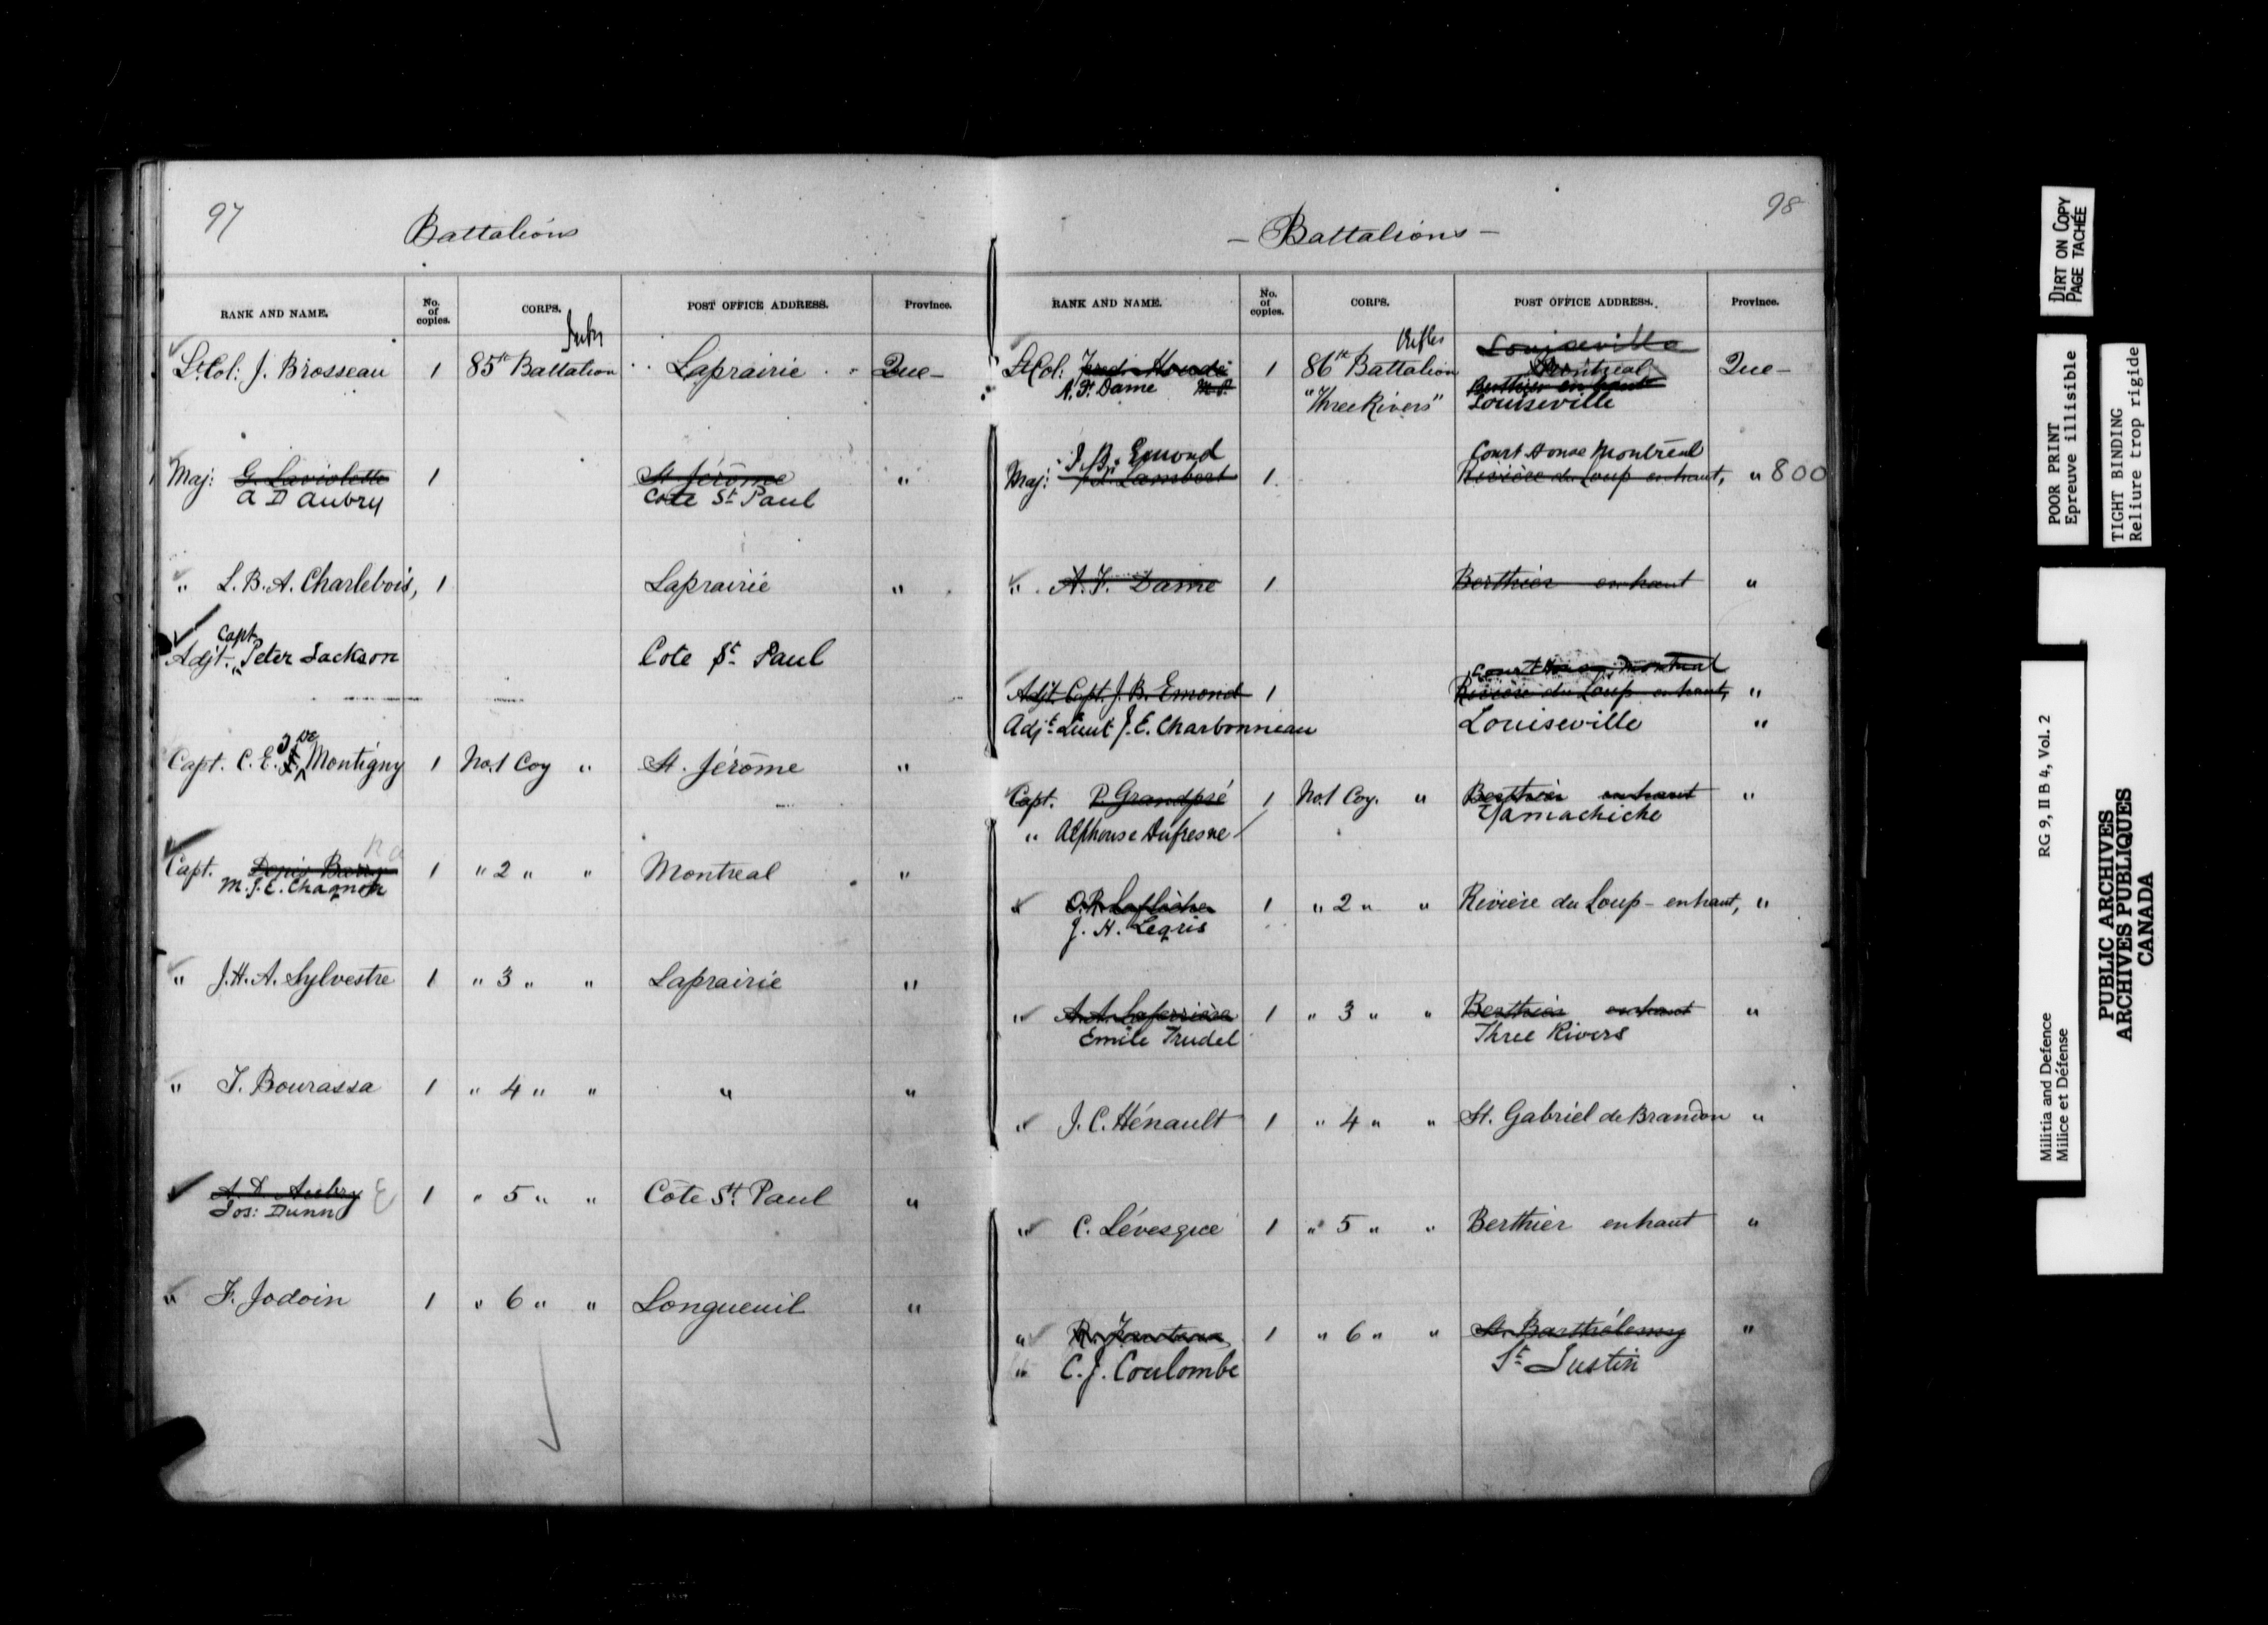 97
Battalions
RANK AND NAME. No. of copies. CORPS. POST OFFICE ADDRESS. Province.
Lt. Col: J. Brosseau 1 85th Battalion Laprairie Que-
Maj: G. Laviolette 1 St Jérôme "
A D Aubry Cote St Paul
" L. B. A. Charlebois, 1 Laprairie "
Capt.
Adjt. Peter Jackson Cote St Paul
Capt. C. E. de Montigny 1 No. 1 Coy " St. Jérôme "
Capt. Denis Barry 1 " 2 " " Montreal "
M. J. E. Chagnon
" J. H. A. Sylvestre 1 " 3 " " Laprairie "
" T. Bourassa 1 " 4 " " " "
A. D Aubry 1 " 5 " " Cote St. Paul "
Jos: Dunn
" F. Jodoin 1 " 6 " " Longueuil "
98
- Battalions -
RANK AND NAME. No. of copies. CORPS. POST OFFICE ADDRESS. Province.
Rifles Louiseville
Lt Col: Fred. Houde 1 86th Battalion Montreal Que-
A. F. Dame M.P. "Three Rivers" Berthier en haut
Louiseville
J. B. Emond Court House Montreal
Maj: Lambert 1 Rivière du Loup en haut, " 800
" A. F. Dame 1 Berthier en haut "
Court House, Montreal
Adjt. Capt. J. B. Emond 1 Rivière du Loup en haut, "
Adjt Lieut J. E. Charbonneau Louiseville "
Capt. P. Grandpré 1 No. 1 Coy. " Berthier en haut "
" Alphonse Dufresne Yamachiche
" O. R. Laflèche 1 " 2 " " Rivière du Loup - en haut, "
J. H. Legris
" A. A. Laferrière 1 " 3 " " Berthier en haut "
Emile Trudel Three Rivers
" J. C. Hénault 1 " 4 " " St. Gabriel de Brandon "
" C. Lévesque 1 " 5 " " Berthier en haut "
" 1 " 6 " " St. Barthélemy "
" C. J. Coulombe St Justin
DIRT ON COPY
PAGE TACHÉE
POOR PRINT
Epreuve illisible
TIGHT BINDING
Reliure trop rigide
Militia and Defence RG 9, II B 4, Vol. 2
Milice et Défense
PUBLIC ARCHIVES
ARCHIVES PUBLIQUES
CANADA